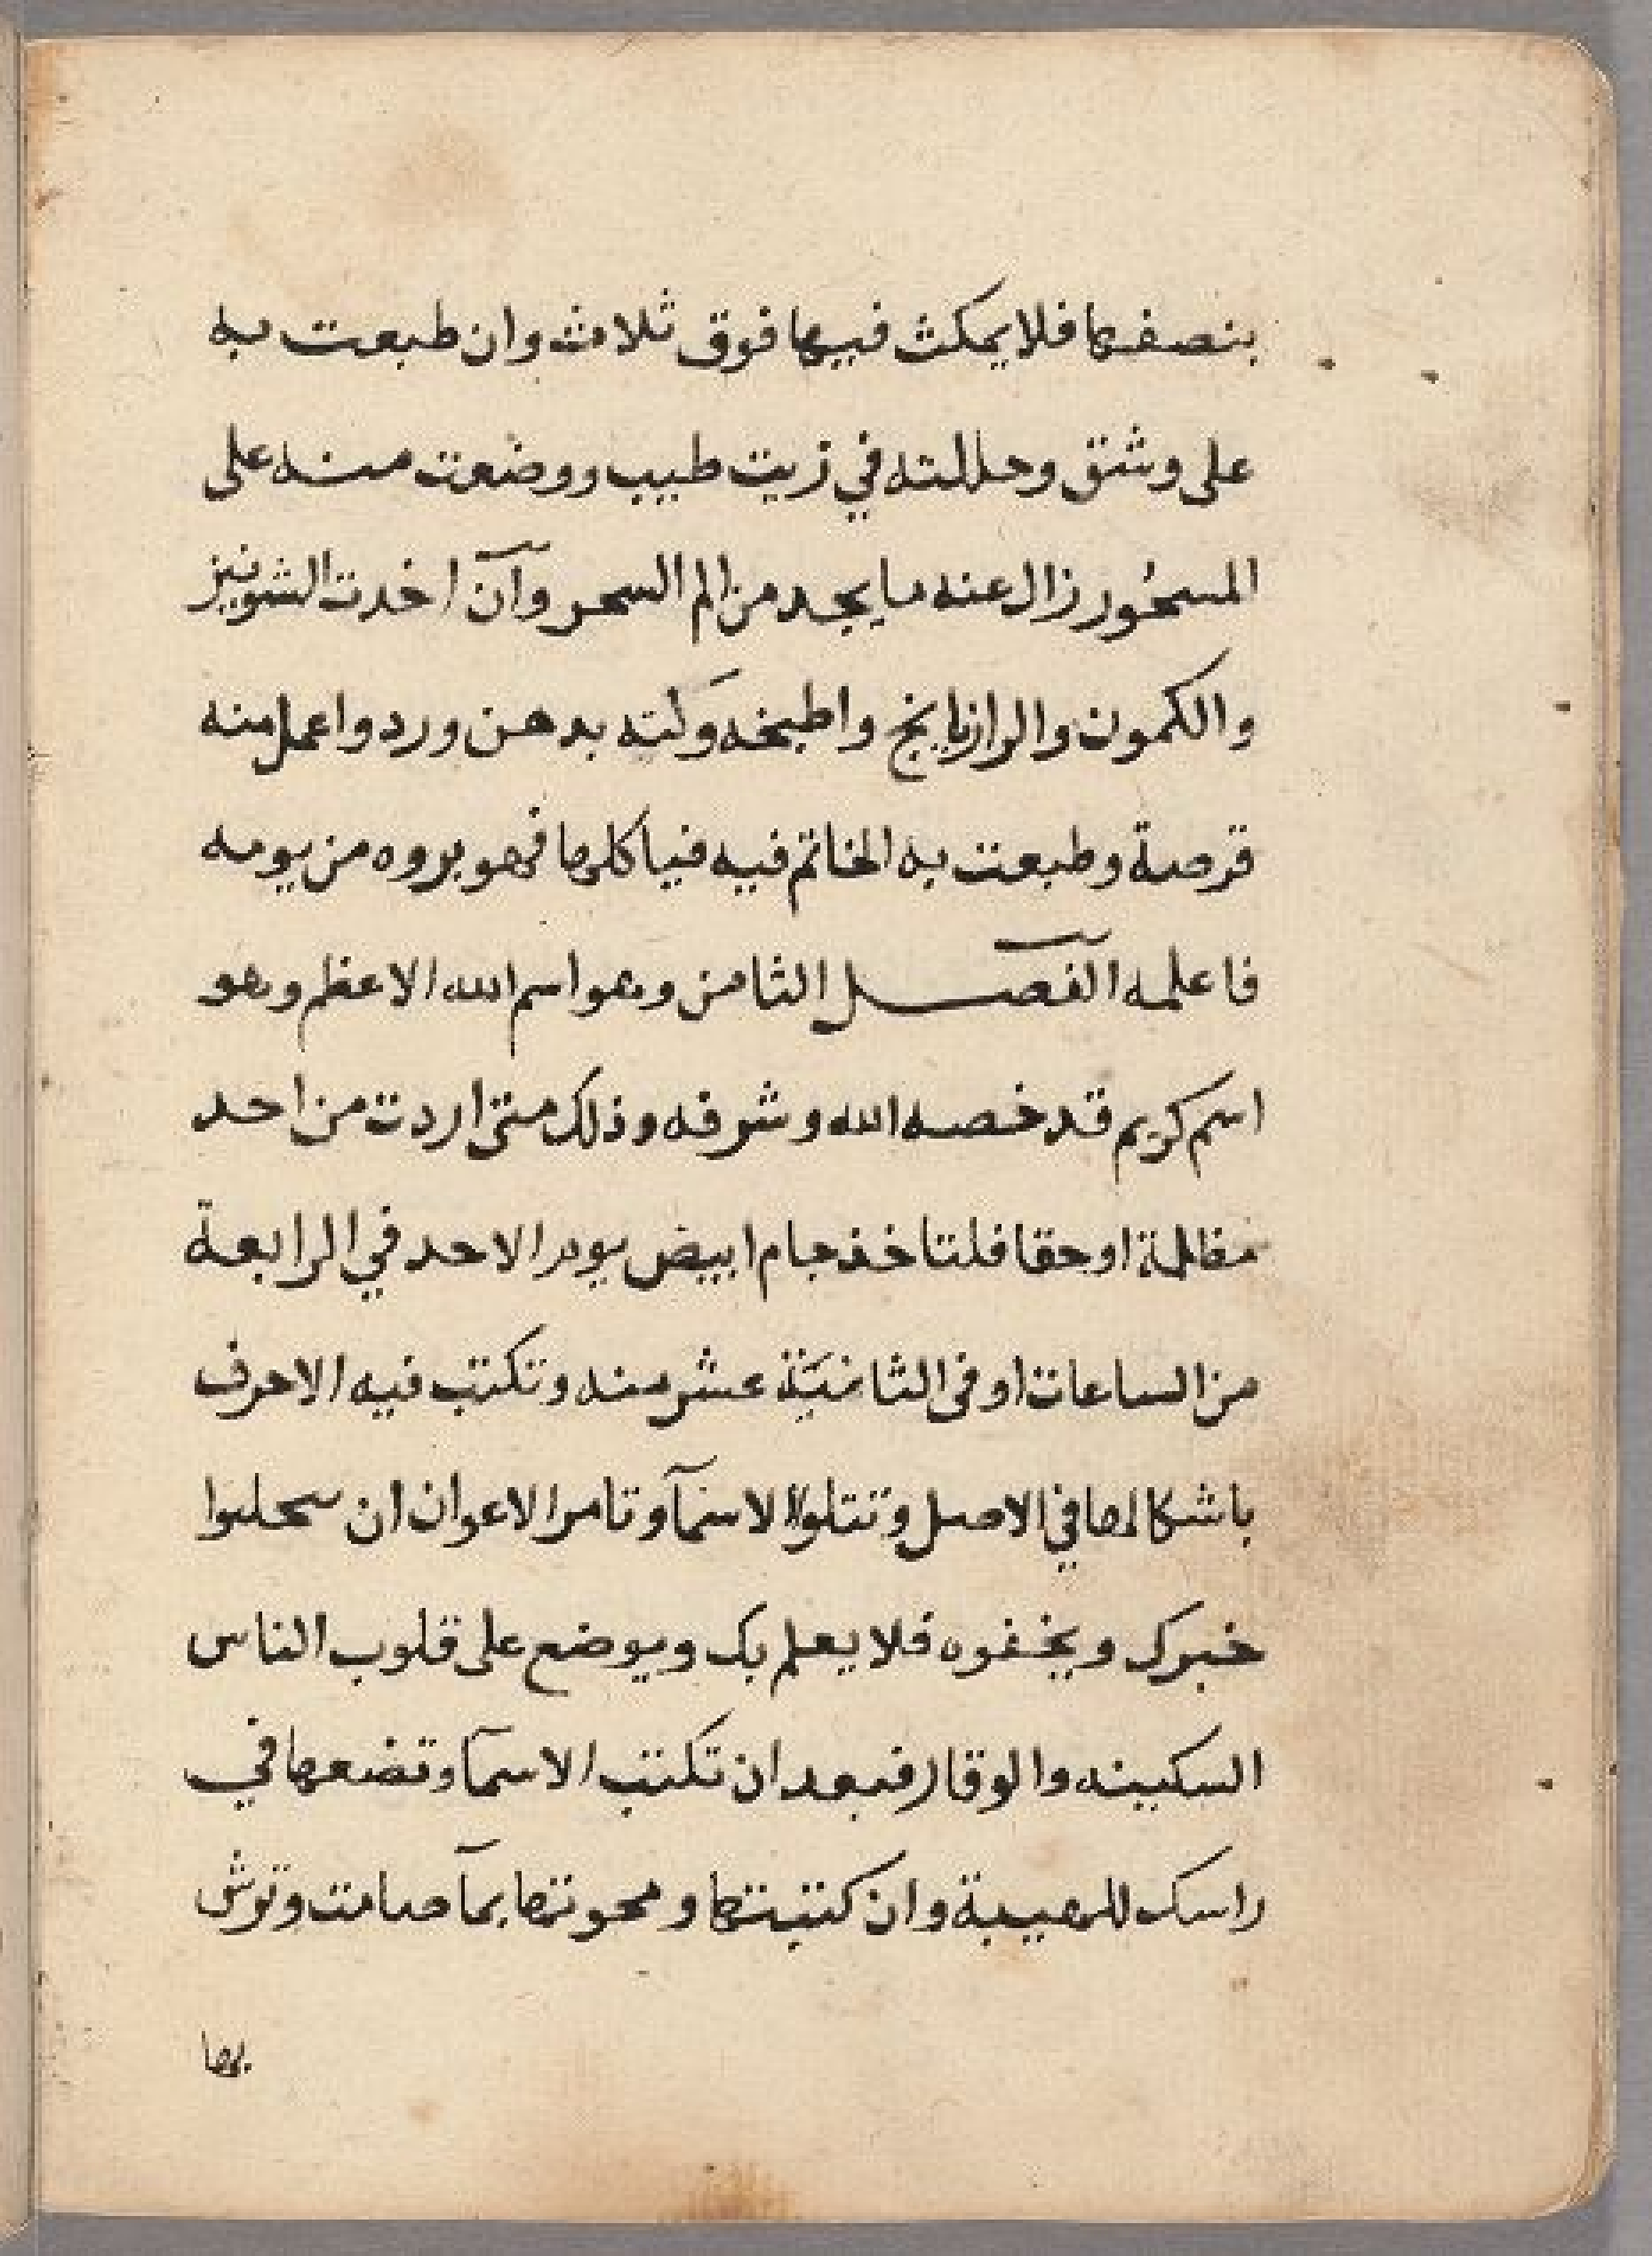 بنصفها فلا يمكث فيها فوق ثلاث وان طبعت به
على وشق وحللته في زيت طيب ووضعت منه على
المسحُور زال عنه ما يجد من الم السحر وآن اخدت الشونيز
والكمون والرازيانج واطبخه وَلته بدهن ورد واعمل منه
قرصة وطبعت به الخاتم فيه فياكلها فهو بروه من يومه
فاعلمه الفصل الثامن وهو اسم الله الاعظم وهو
اسم كريم قد خصه الله وشرفه وذلك متى اردت من احد
مظلمة او حقا فلتاخذ جام ابيض يوم الاحد في الرابعة
من الساعات او في الثانيَة عشر منه وتكتب فيه الاحرف
باشكالها في الاصل وتتلوا الاسمآ وتامر الاعوان ان
خبرك ويخفوه فلا يعلم بك ويوضع على قلوب الناس
السكينه والوقار فبعد ان تكتب الاسمآ وتضعها في
راسك للهيبة وان كتبتها ومحوتها بمآ صامت وترش
بها